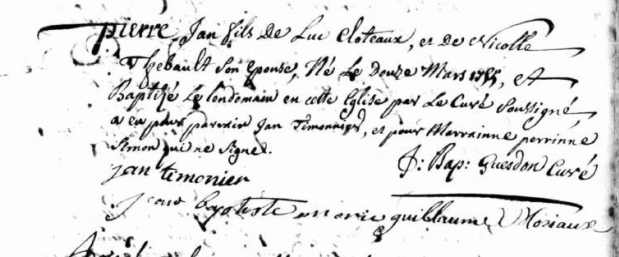 pierre Jan fils De Luc Cloteaux, et De Nicolle
Thebault Son epouse, Né Le Douze Mars 1755, et
Baptizé Le lendemain en cette Eglise par Le Curé Soussigné
a eu pour parrain Jan Temonnier, et pour Marrainne perrinne
Simon qui ne Signe.
J: Bap: Guesdon Curé
jan temonier
baptiste marie guillaume